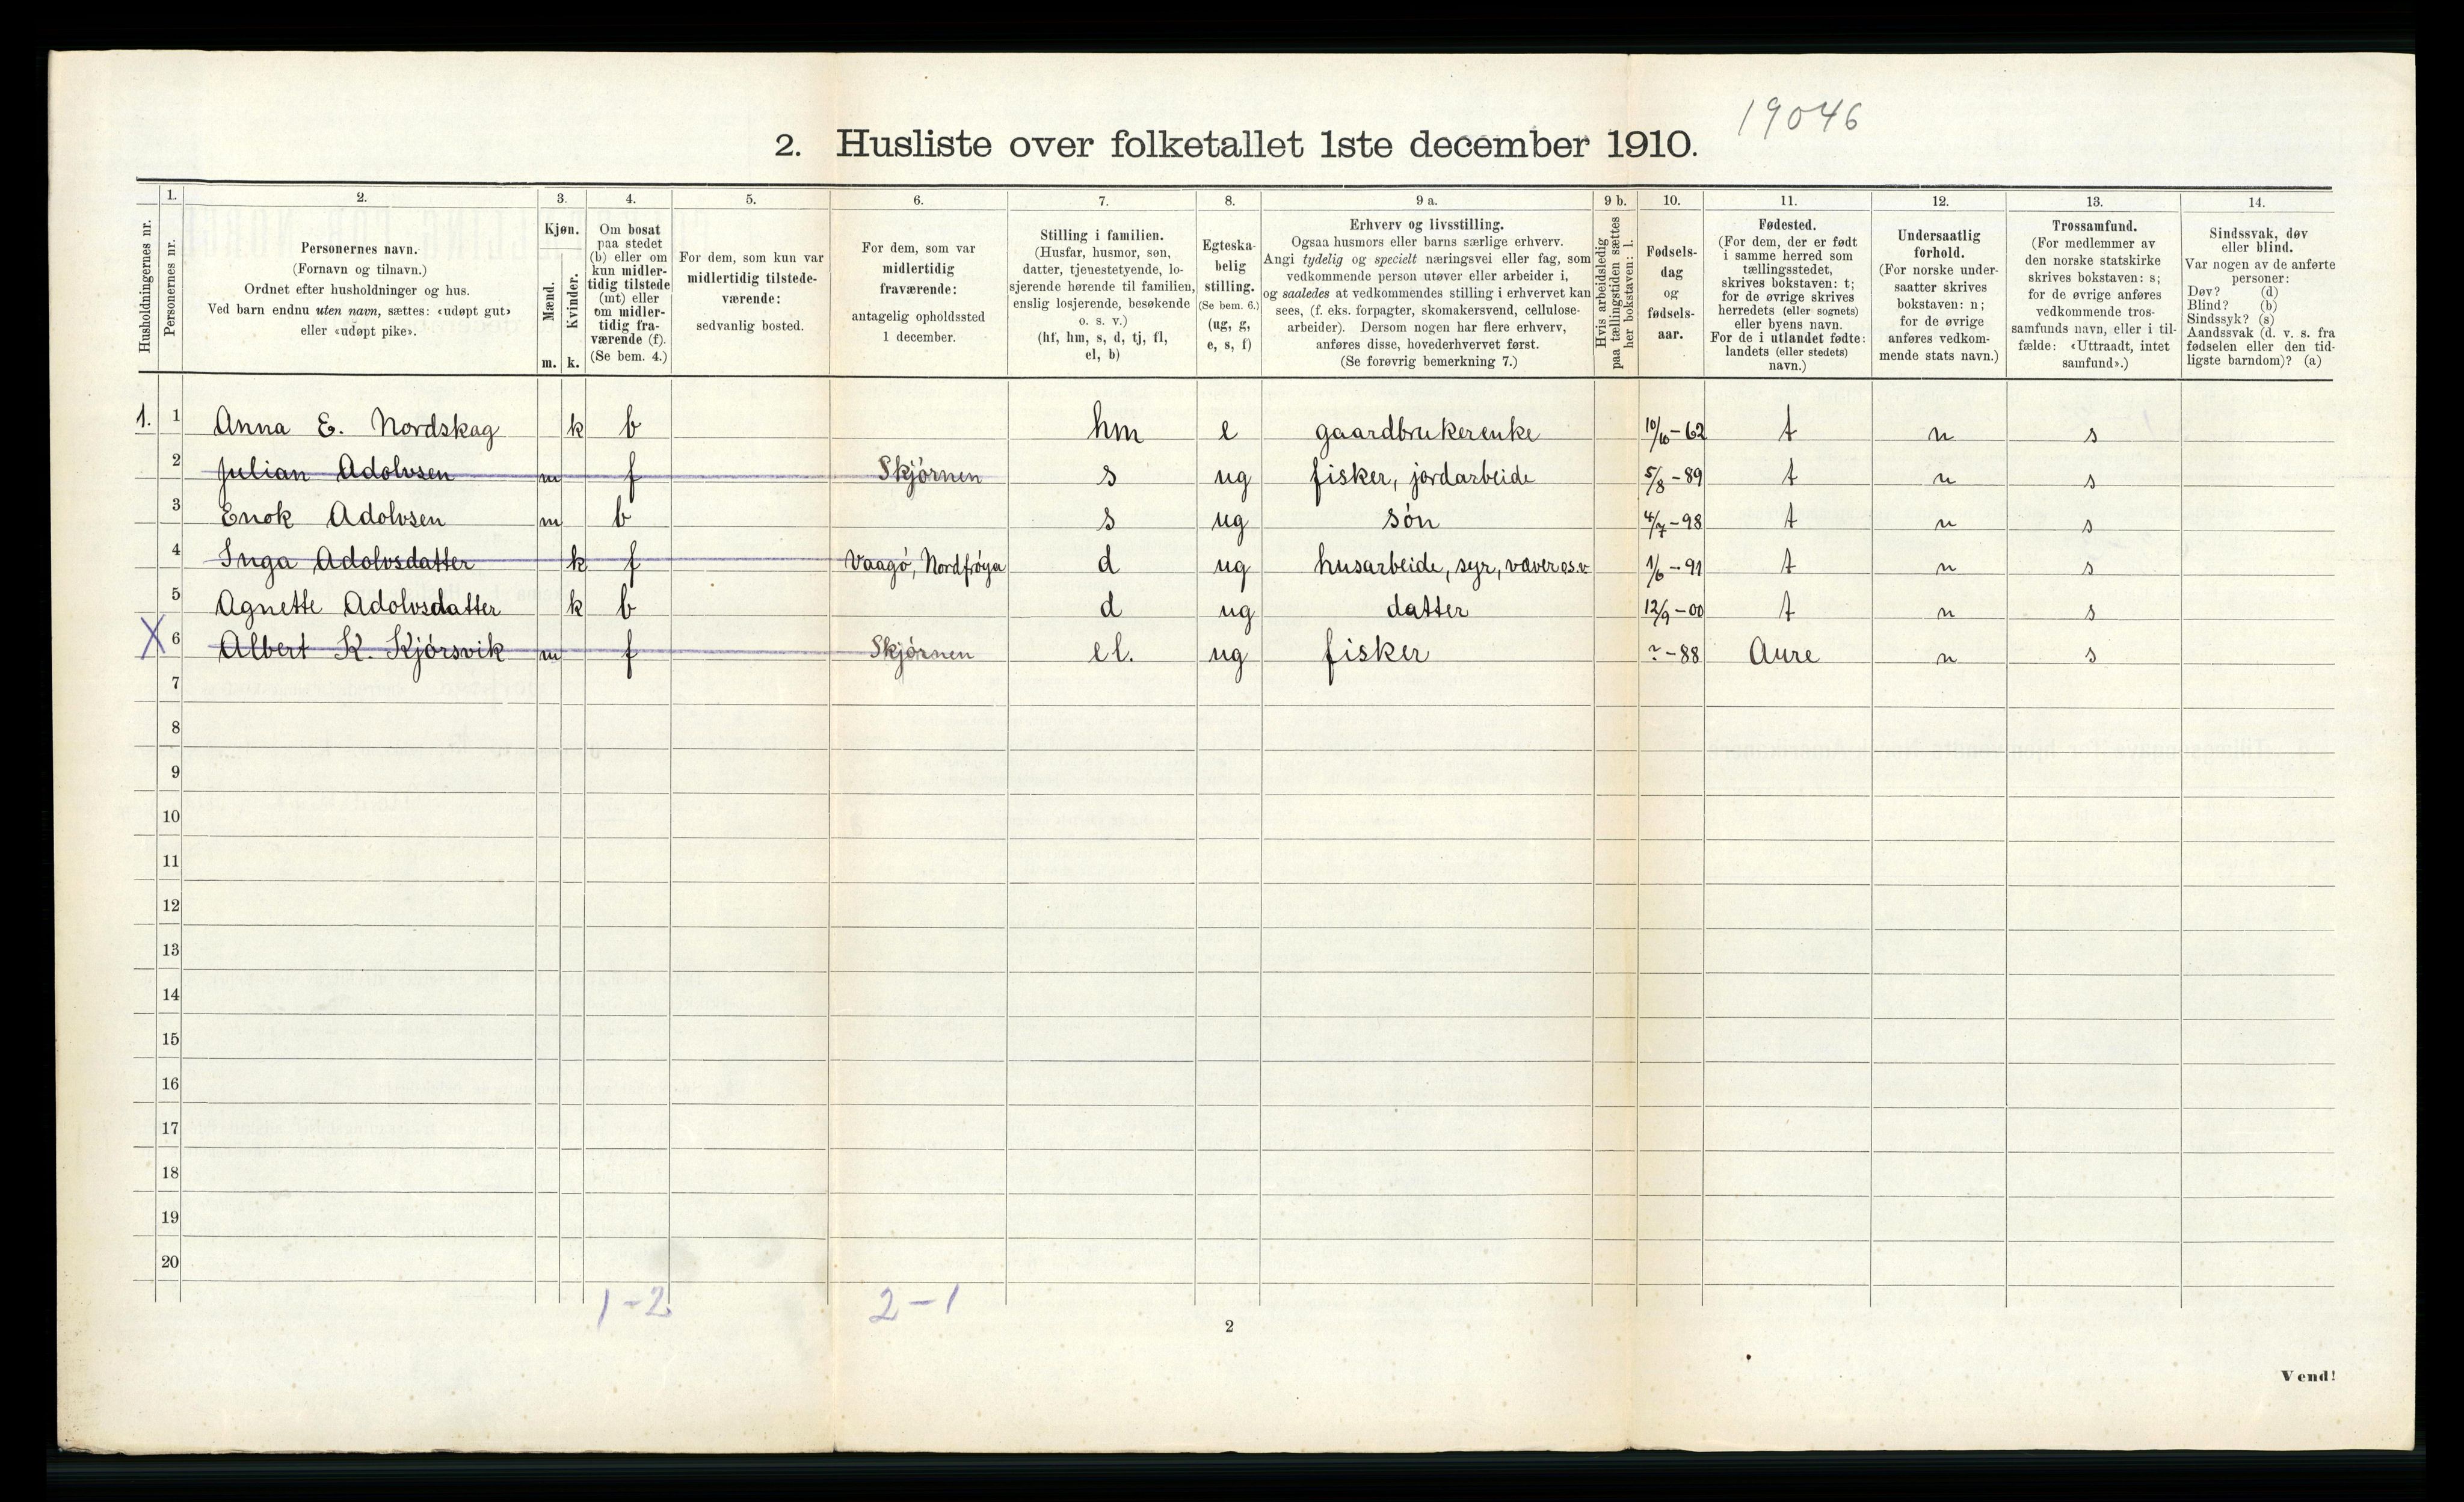 19046
2. Husliste over folketallet 1ste december 1910.
Husholdningernes nr.
1.
Personernes nr.
2.
Personernes navn.
(Fornavn og tilnavn.)
Ordnet efter husholdninger og hus.
Ved barn endnu uten navn, sættes: «udøpt gut»
eller «udøpt pike».
3.
Kjøn.
Mænd.
Kvinder.
m. k.
4.
Om bosat
paa stedet
(b) eller om
kun midler-
tidig tilstede
(mt) eller
om midler-
tidig fra-
værende (f).
(Se bem. 4.)
5.
For dem, som kun var
midlertidig tilstede-
værende:
sedvanlig bosted.
6.
For dem, som var
midlertidig
fraværende:
antagelig opholdssted
1 december.
7.
Stilling i familien.
(Husfar, husmor, søn,
datter, tjenestetyende, lo-
sjerende hørende til familien,
enslig losjerende, besøkende
o. s. v.)
(hf, hm, s, d, tj, fl,
el, b)
8.
Egteska-
belig
stilling.
(Se bem. 6.)
(ug, g,
e, s, f)
9 a.
Erhverv og livsstilling.
Ogsaa husmors eller barns særlige erhverv.
Angi tydelig og specielt næringsvei eller fag, som
vedkommende person utøver eller arbeider i,
og saaledes at vedkommendes stilling i erhvervet kan
sees, (f. eks. forpagter, skomakersvend, cellulose-
arbeider). Dersom nogen har flere erhverv,
anføres disse, hovederhvervet først.
(Se forøvrig bemerkning 7.)
9 b.
Hvis arbeidsledig
paa tællingstiden sættes
her bokstaven: l.
10.
Fødsels-
dag
og
fødsels-
aar.
11.
Fødested.
(For dem, der er født
i samme herred som
tællingsstedet,
skrives bokstaven: t;
for de øvrige skrives
herredets (eller sognets)
eller byens navn.
For de i utlandet fødte:
landets (eller stedets)
navn.)
12.
Undersaatlig
forhold.
(For norske under-
saatter skrives
bokstaven: n;
for de øvrige
anføres vedkom-
mende stats navn.)
13.
Trossamfund.
(For medlemmer av
den norske statskirke
skrives bokstaven: s;
for de øvrige anføres
vedkommende tros-
samfunds navn, eller i til-
fælde: «Uttraadt, intet
samfund».)
14.
Sindssvak, døv
eller blind.
Var nogen av de anførte
personer:
Døv? (d)
Blind? (b)
Sindssyk? (s)
Aandssvak (d. v. s. fra
fødselen eller den tid-
ligste barndom)? (a)
1. 1 Anna E. Nordskag k b hm e gaardbrukerenke 10/10 - 62 t n s
2 Julian Adolvsen m f Skjórnen s ug fisker, jordarbeide 5/8 - 89 t n s
3 Enok Adolvsen m b s ug són 4/7 - 98 t n s
4 Inga Adolvsdatter k f Vaagó, Nordfróya d ug husarbeide, syr, væver o.s.v. 1/6 - 91 t n s
5 Agnette Adolvsdatter k b d ug datter 12/9 - 00 t n s
X 6 Albert K. Kjórsvik m f Skjórnen el. ug fisker ? - 88 Aure n s
7
8
9
10
11
12
13
14
15
16
17
18
19
20
1 - 2 2 - 1
2
Vend!